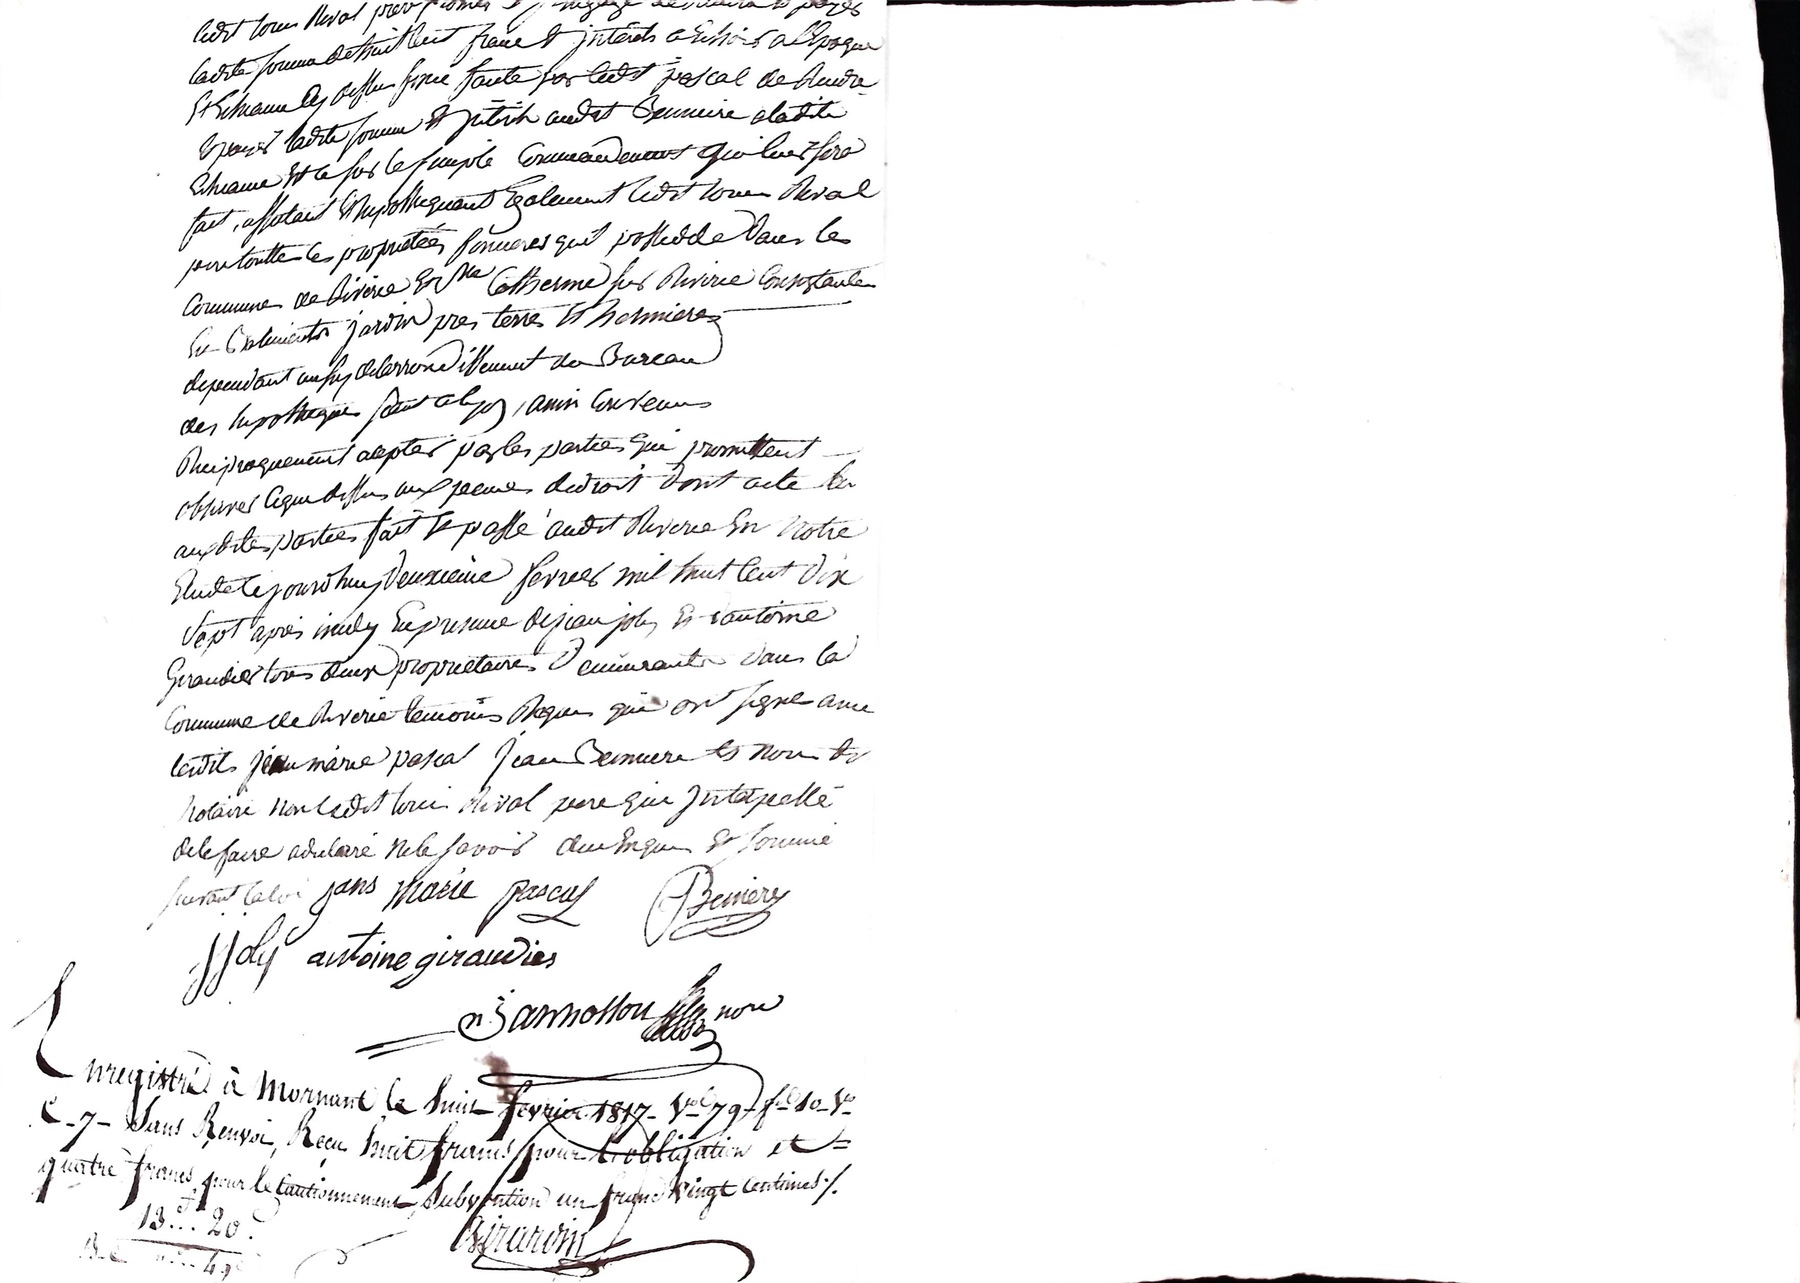 ledit Louis Rival père promet et s'engage de rendre et payer
ladite somme de huit cent francs et jnterêts a Echoir a l'Epoque
Et Echeance Cy dessus fixée faute par ledit pascal de Rendre
Et payer ladite somme Et jnterêts audit Bruniere aladite
Echeance Et ce sur le simple Commandement qui luy sera
fait, affectant Et hypothequant Egalement ledit Louis Rival
pere touttes les proprietées foncieres quil possedde dans les
Communes de Riverie Et Ste Catherine sur Riverie Consistantes
En Batiments jardin prés terres Et hermieres
dependant aussy de larrondissement du Bureau
des hypotheques saint alyon, ainsi Convenus
Reciproquement acepter par les parties qui promettent
observer Ceque dessus aux peines dedroit dont acte
auxdites parties fait Et passé audit Riverie En notre
Etude Cejourdhuy deuxieme fevrier mil huit Cent dix
Sept après midy En presence de jean joly Et dantoine
Giraudier tous deux proprietaires demeurants dans la
Commune de Riverie temoins Requis qui ont signé avec
lesdits jean marie pascal jean Bruniere Et nous dt
notaire non ledit Louis Rival pere qui jnterpellé
dele faire adeclaré nele savoir duement Enquis Et sommé
suivant la loi jans marie pascal Bruniere
jjoly antoine giraudier
njannosson nore
Enregistré à Mornant le huit fevrier 1817 - Vol 79 - fo 10 Vo
C - 7 - Sans Renvoi, Reçu huit francs pour l'obligation et
quatre francs pour le Cautionnement, Subvention un franc vingt centimes ./.
13 f .. 20 c
Girardin
49 c